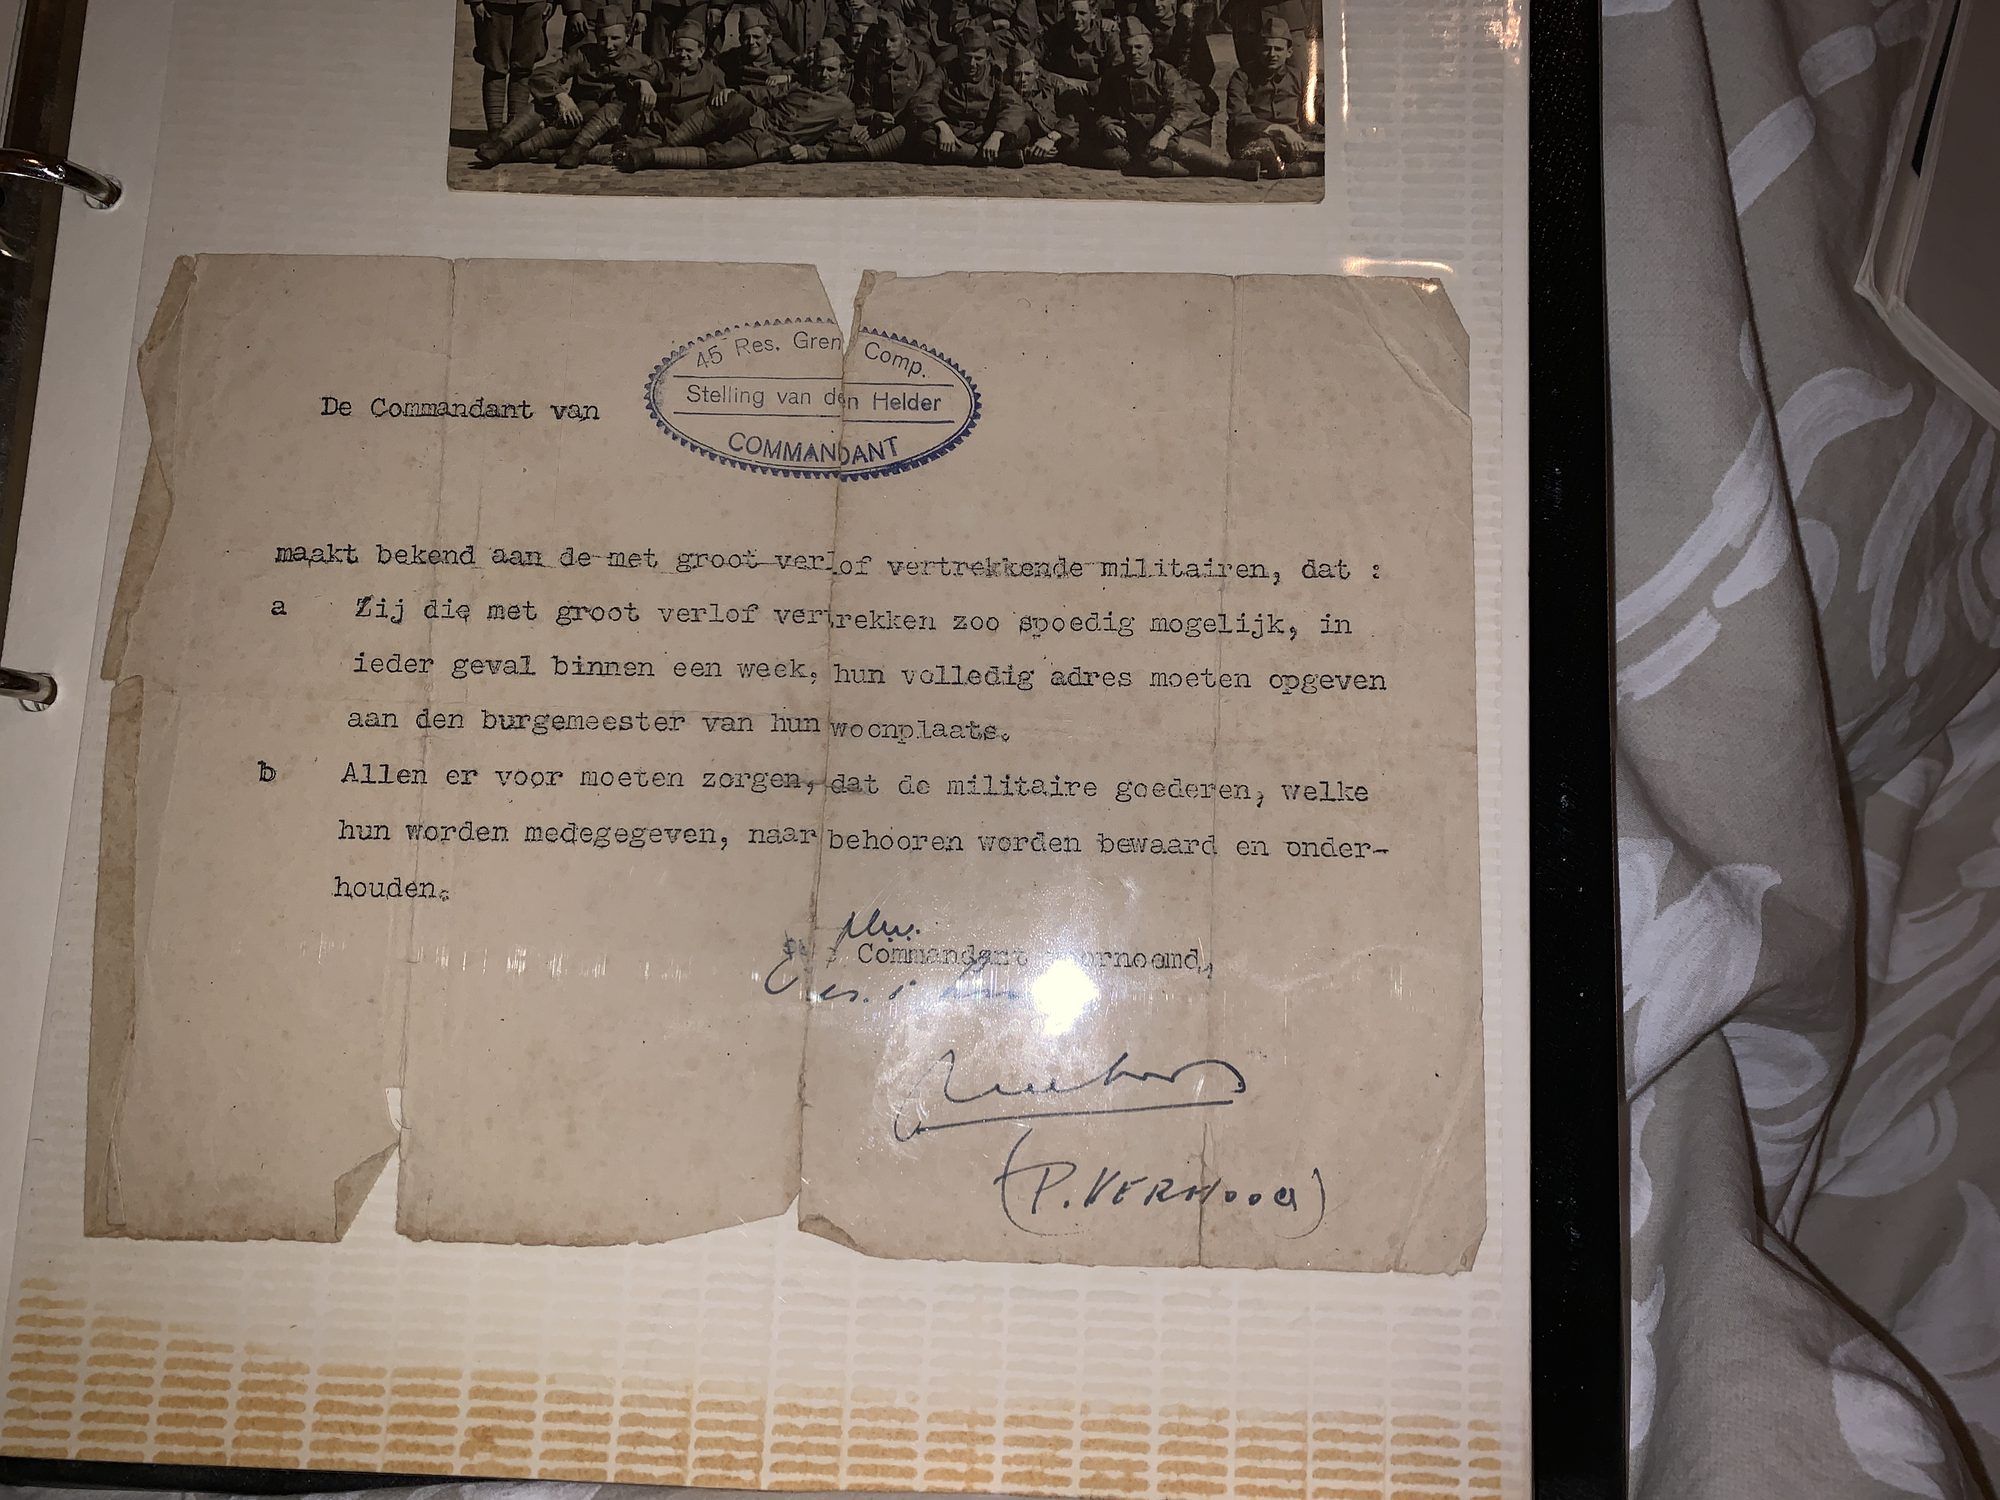 45 Res. Gren Comp.
Stelling van den Helder
COMMANDANT
De Commandant van
maakt bekend aan de met groot verlof vertrekkende militairen, dat :
a Zij die met groot verlof vertrekken zoo spoedig mogelijk, in
ieder geval binnen een week, hun volledig adres moeten opgeven
aan den burgemeester van hun woonplaats.
b Allen er voor moeten zorgen, dat de militaire goederen, welke
hun worden medegegeven, naar behooren worden bewaard en onder-
houden.
Commandant
(P. VERHOOG)